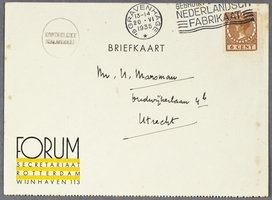 'S GRAVENHAGE
13-14
20.VI
1935
GEBRUIKT
NEDERLANDSCH
FABRIKAAT
6 CENT
BRIEFKAART
Mr. H. Marsman
4 b
Utrecht
FORUM
SECRETARIAAT
ROTTERDAM
WIJNHAVEN 113